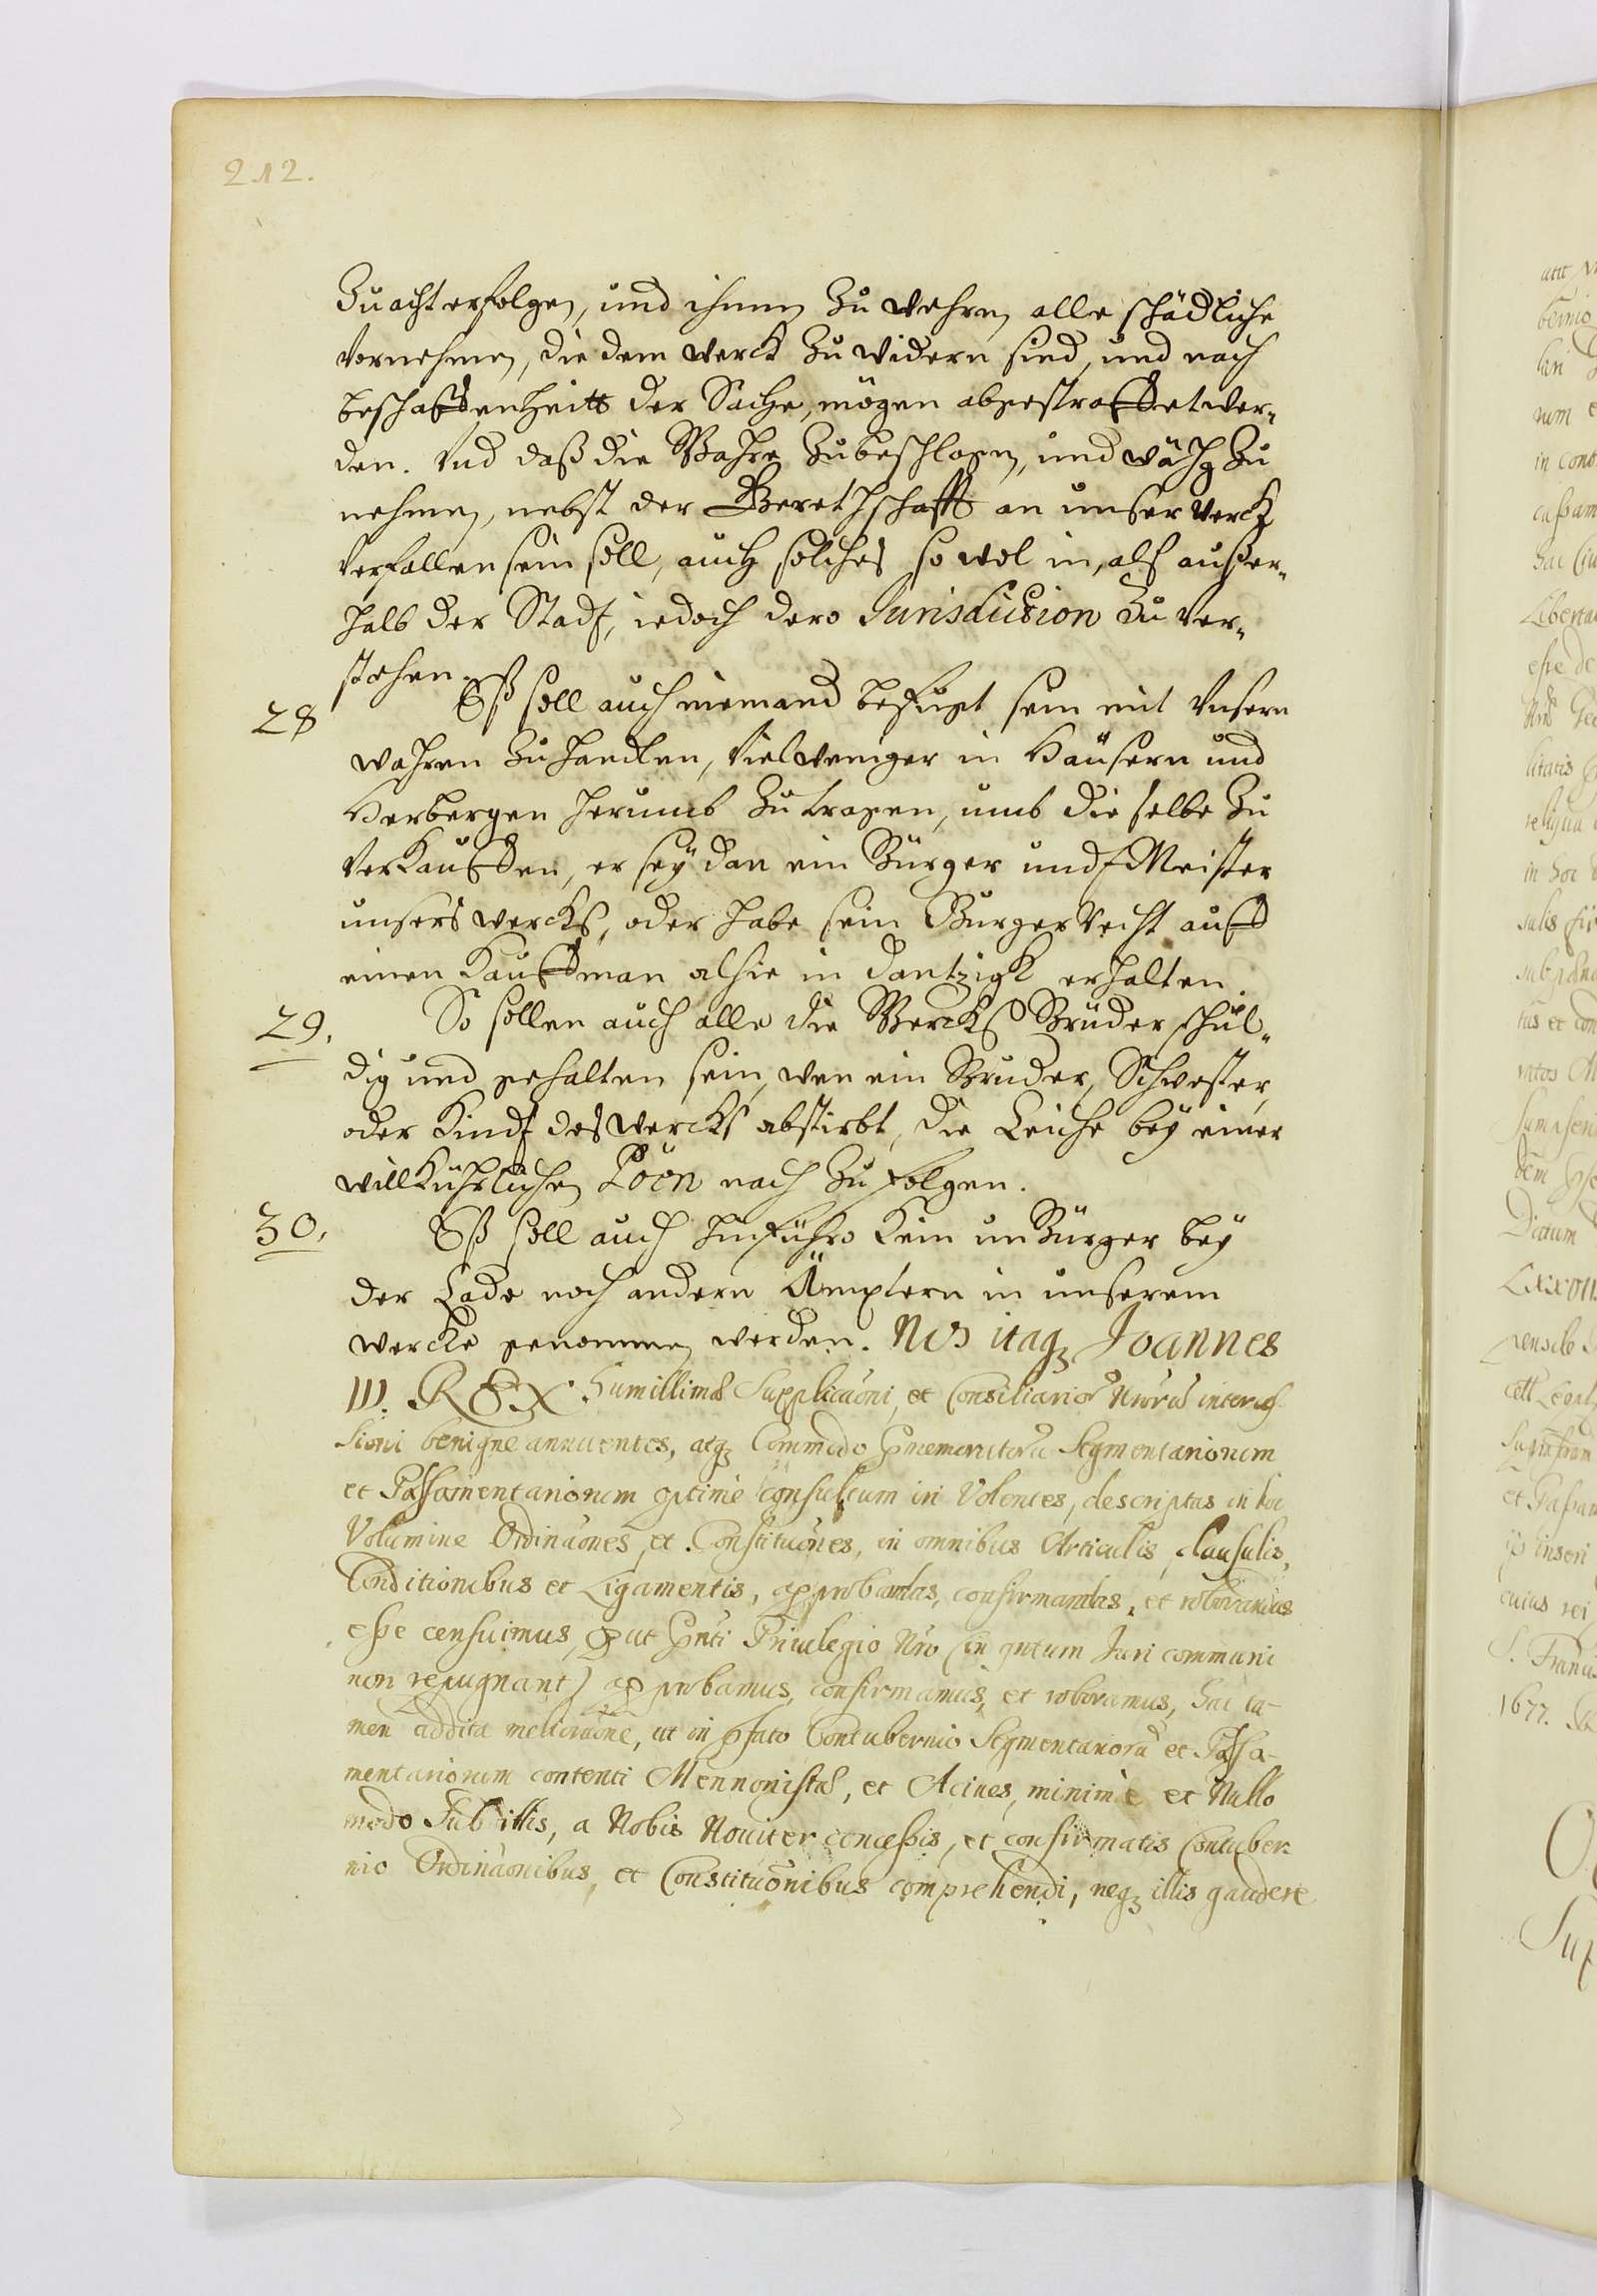 212.
Zu acht erfolgen, und ihnen Zu wehren alle schädliche
Vornehmen, die dem werck Zu widern sind, und nach
beschaffenheitt der Sache, mögen abgestraffet wer-
den. Vnd daß die Wahre Zubeschlagen, und Zu
nehmen, nebst der Gerethschafft an unser werck
Verfallen sein soll, auch solches so wol in, alß außer-
halb der Stadt, iedoch dero Jurisdiction Zu ver-
stehen.
28 Eß soll auch niemand befugt sein mit Vnsern
wahren Zu handlen, Vielweniger in Häusern und
Herbergen herumb Zu tragen, umb die selbe Zu
Verkauffen, er seÿ dan ein Bürger und Meister
unsers wercks, oder habe sein Burger Recht auff
einen Kauffman alhie in Dantzigk erhalten.
29. So sollen auch alle die Wercks Brüder schul-
dig und gehalten sein, wen ein Bruder, Schwester,
oder Kindt des wercks abstirbt, die Leiche beÿ einer
willkührlichen Pöen nach Zu folgen.
30. Eß soll auch hinführo kein un Bürger beÿ
der Lade noch andern Ämptern in unserem
wercke genommen werden. Nos itaq Joannes
III. REX. humillimæ Supplicaoni, et Consiliarior Nroru interces-
sioni benigne annuentes, atq Commodo prnemeratoru Segmentariorum
et Passamentariorum optime consultum iri Volentes, descriptas in hoc
Volumine Ordinaones, et Constituones, in omnibus Articulis, clausulis,
Conditionibus et Ligamentis, approbandas, confirmandas, et roborandas
esse censuimus, put pnti Priuilegio Nro (in qntum Juri communi
non repugnant) approbamus, confirmamus, et roboramus, hac ta-
men addita melioraone, ut in pfato Contubernio Segmentarioru et Passa-
mentariorum contenti Mennonistæ, et Aciues, minime et Nullo
modo Sub illis, a Nobis Nouiter concessis, et confirmatis Contuber-
nio Ordinaonibus, et Constituonibus comprehendi, neq illis gaudere